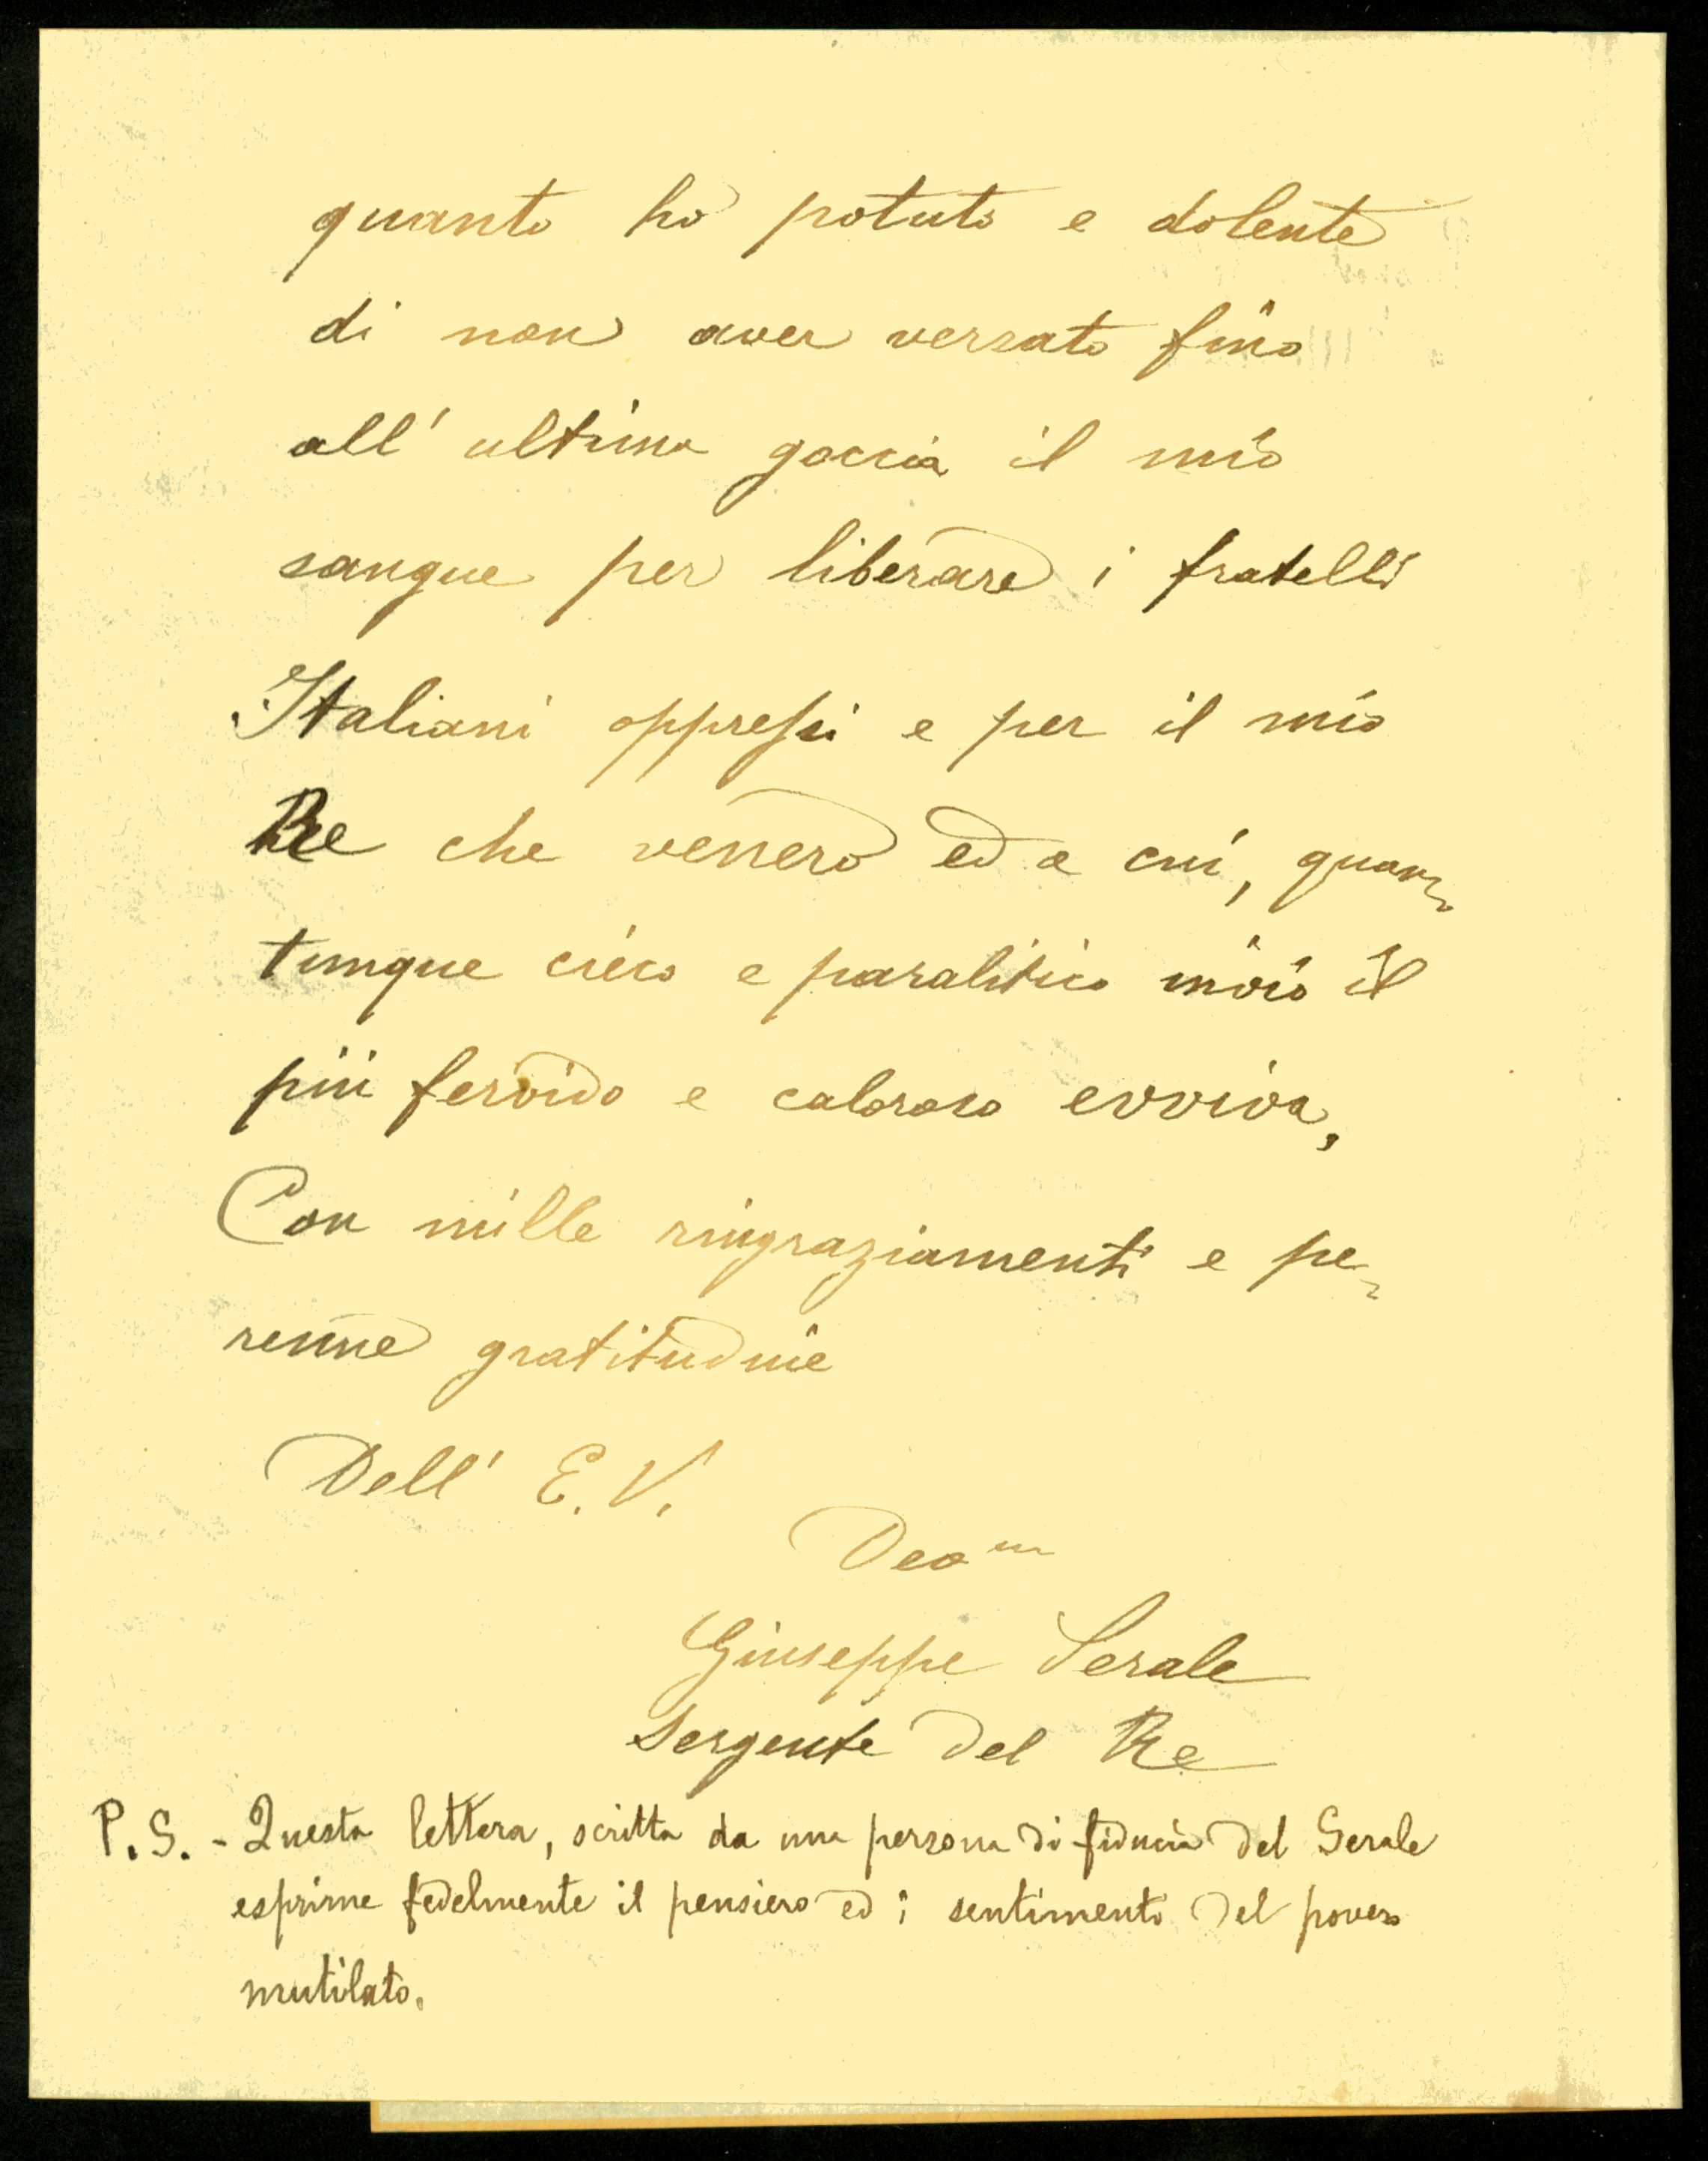 quanto ho potuto e dolente
di non aver versato fino
all' ultima goccia il mio
sangue per liberare i fratelli
Italiani oppressi e per il mio
Re che venero ed a cui, quan-
tunque cieco e paralitico invio il
più fervido e caloroso evviva,
Con mille ringraziamenti e pe-
renne gratitudine
Dell' E. V.
Dev^mo
Giuseppe Serale
Sergente del Re
P. S. - Questa lettera, scritta da una persona di fiducia del Serale
esprime fedelmente il pensiero ed i sentimenti del povero
mutilato.